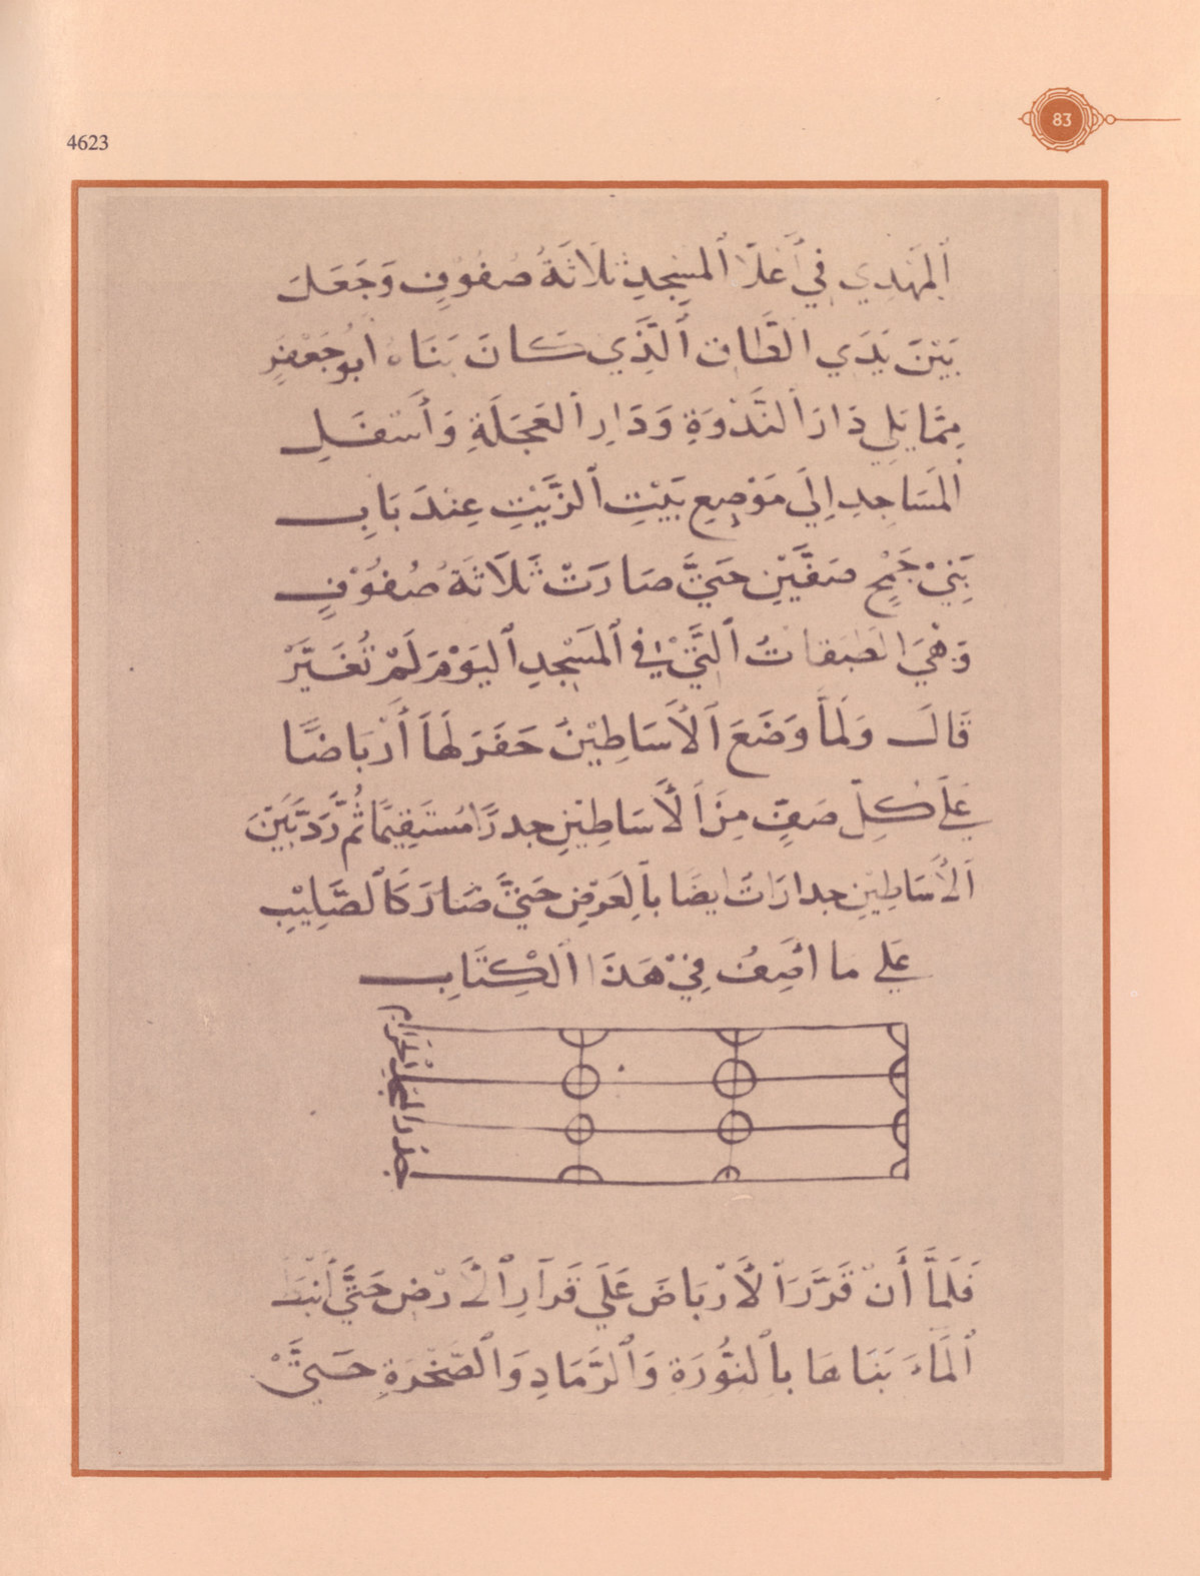 83
4623
ٱلمَهْدِي فِي أَعْلَا ٱلمَسْجِدِ ثَلَاثَةُ صُفُوْفٍ وَجَعَلَ
بَيْنَ يَدَي الطَّاقِ ٱلَّذِي كَانَ بَنَاهُ أبُو جَعْفَرٍ
مِمَّا يَلِي دَارَ ٱلنَّدْوَةِ وَدَارِ ٱلعَجَلَةِ وَأَسْفَلِ
ٱلمَسَاجِدِ إِلَى مَوْضِعِ بَيْتِ ٱلزَّيْتِ عِنْدَ بَابِ
بَنِيْ جَمْحٍ صَفَّيْنِ حَتَّى صَارَتْ ثَلَاثَةَ صُفُوْفٍ
وَهْيَ الطَبَقَاتُ ٱلَّتِيْ فِي ٱلمَسْجِدِ ٱليَوْمَ لَمْ تُغَيَّرْ
قَالَ وَلَمَّا وَضَعَ ٱلأَسَاطِيْنَ حَفَرَ لَهَا أَرْبَاضًا
عَلَى كُلِّ صَفٍّ مِنَ ٱلأَسَاطِيْنِ جدرًا مُسْتَقِيْمًا ثُمَّ رَدَّ بَيْنَ
ٱلأَسَاطِيْنِ جدارَاتَ ايضًا بِٱلعَرْضِ حَتَّى صَارَ كَٱلصَّلِيْبِ
عَلَى ما اصِفُ فِيْ هَذَا ٱلْكِتَابِ
جدر المسجد الحرام
فَلَمَّا أَنْ قَرَّرَ ٱلأَرْبَاضَ عَلَى قَرَارِ ٱلأَرْضِ حَتَّى أَنْبَطَ
ٱلمَاءَ بَنَاهَا بِٱلنُّوْرَةِ وَٱلرَّمَادِ وَٱلصَّخْرَةِ حَتَّى